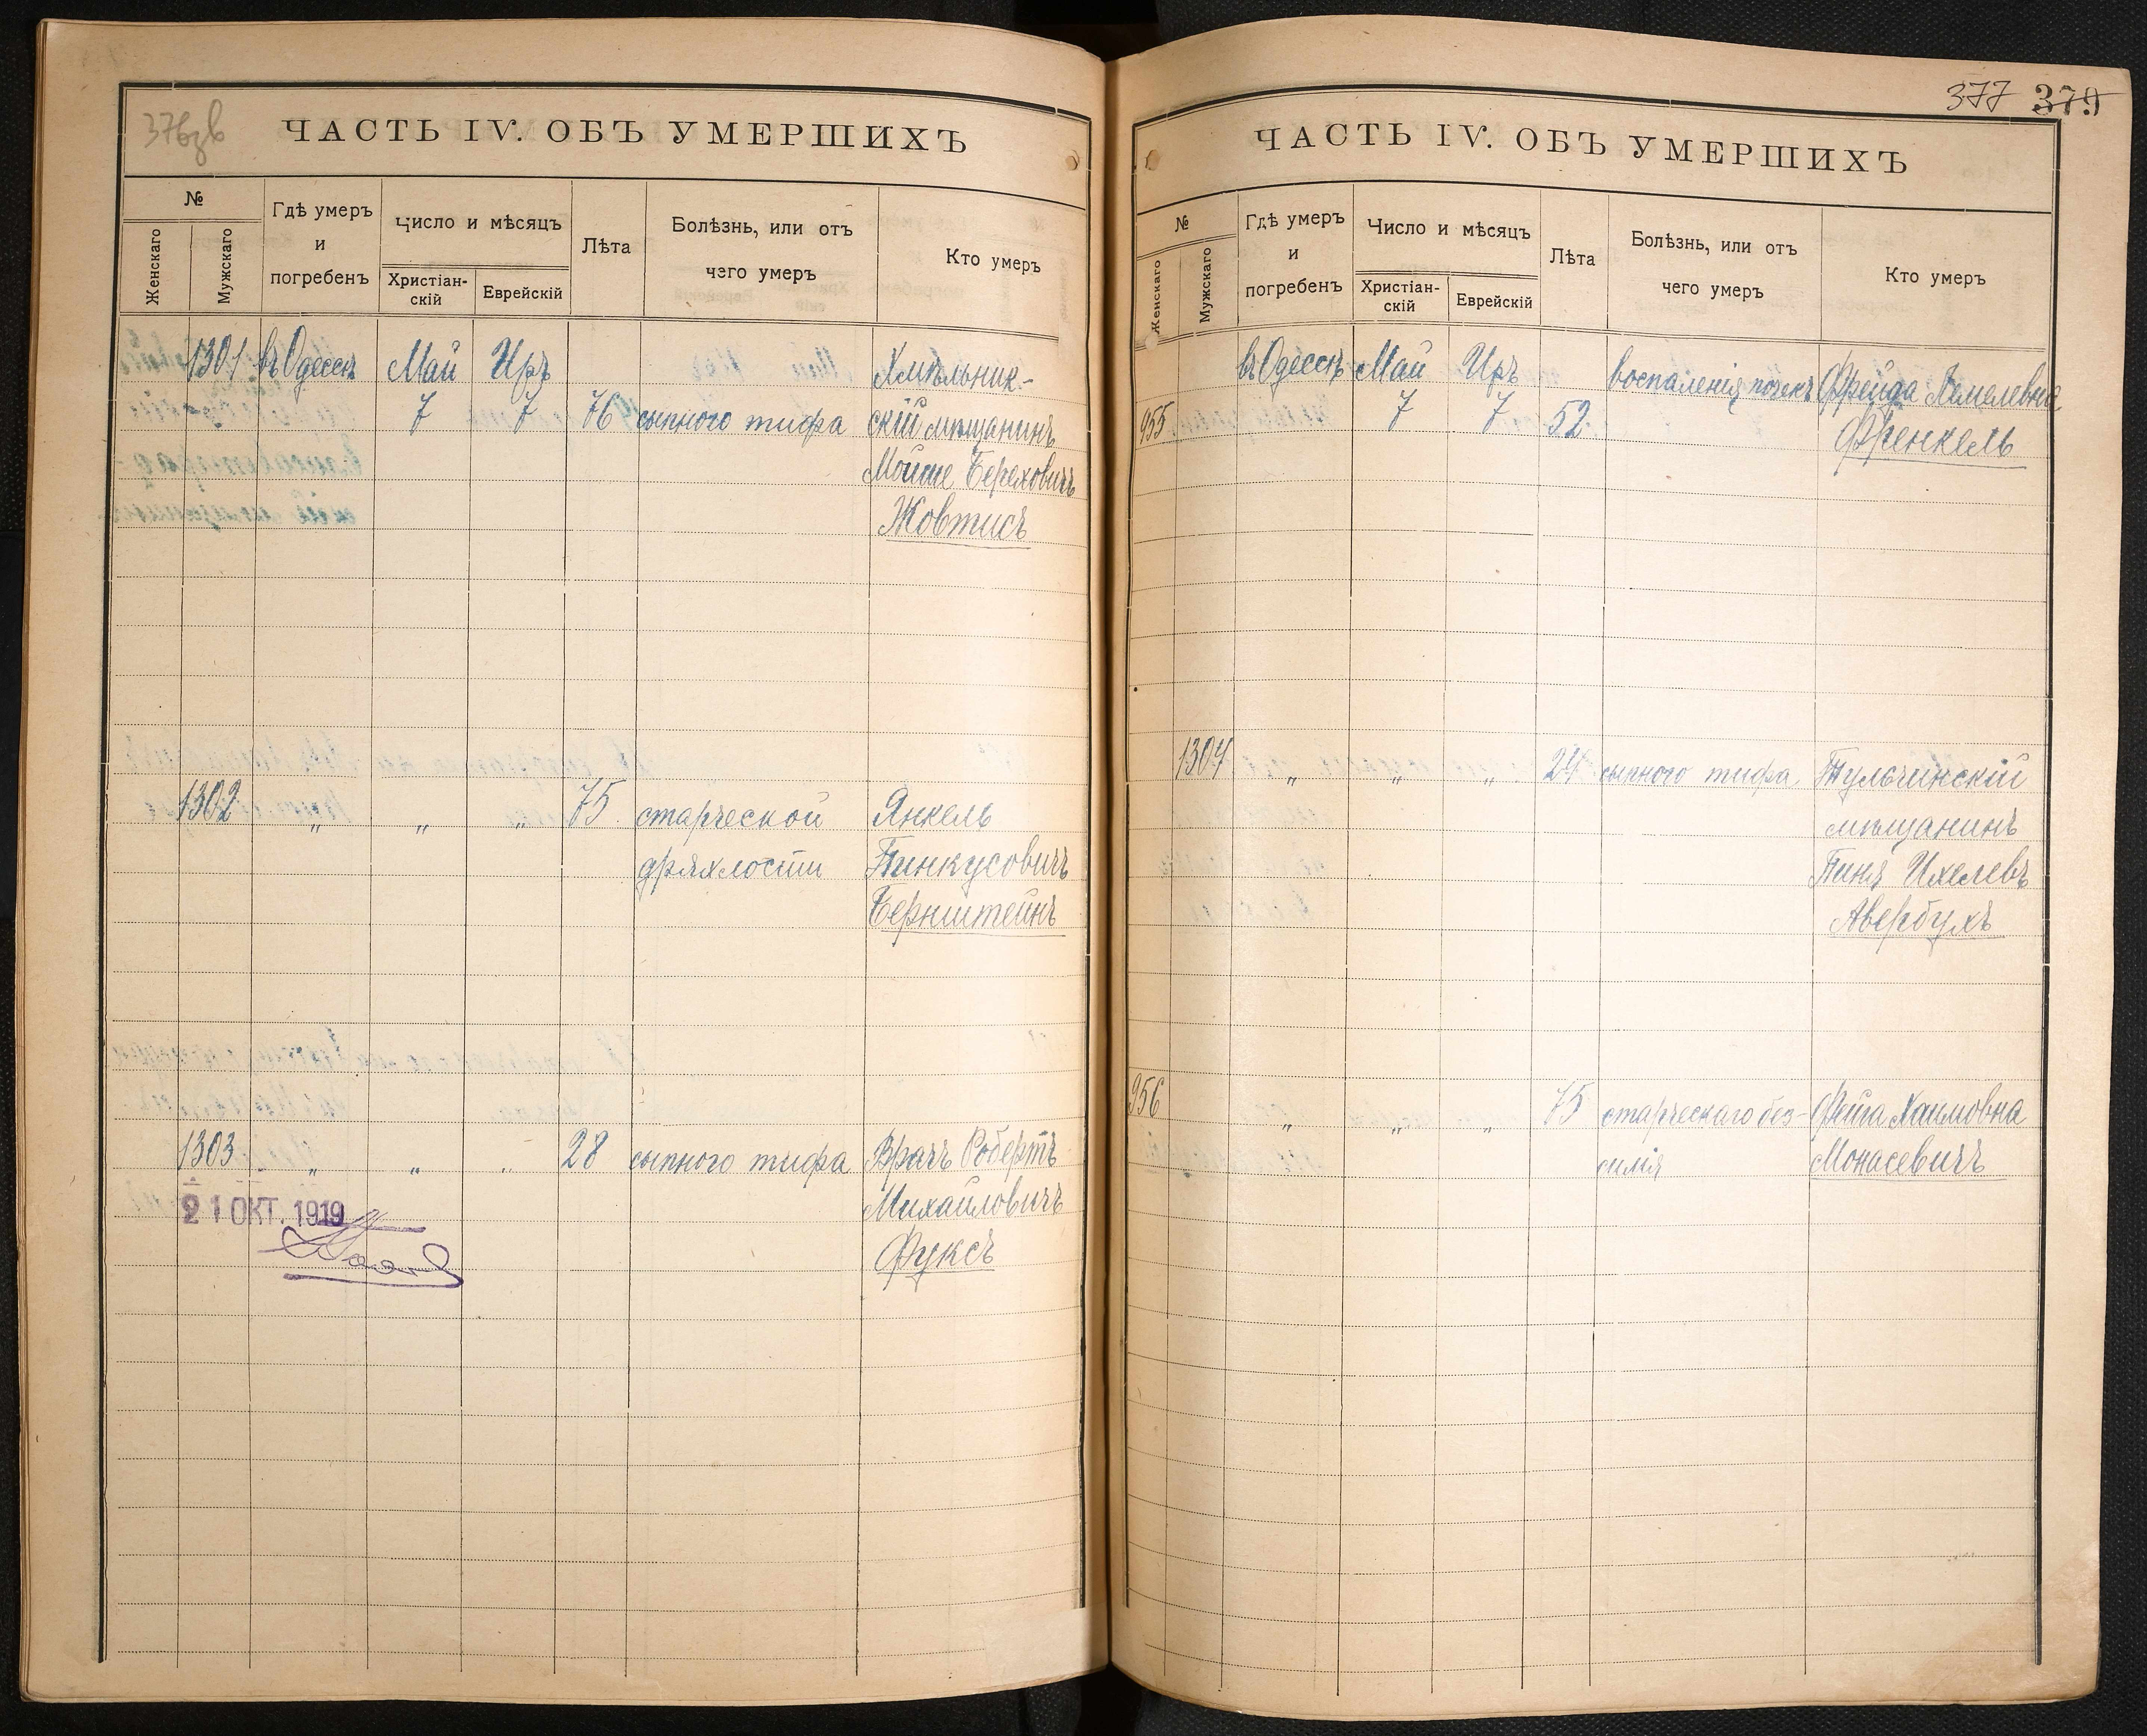 376зв
ЧАСТЬ IV. ОБЪ УМЕРШИХЪ
№
Женскаго
Мужскаго
Гдѣ умеръ
и
погребенъ
Число и мѣсяцъ
Христіан-
скій
Еврейскій
Лѣта
Болѣзнь, или отъ
чего умеръ
Кто умеръ
1301 въ Одессѣ Май Иръ Хмѣльник-
7 7 76 сыпного тифа скій мѣщанинъ
Мойше Берковичъ
Жовтисъ
1302 " " " 75 старческой Янкель
дряхлости Пинкусовичъ
Бернштейнъ
1303 " " " 28 сыпного тифа Врачъ Робертъ
21 ОКТ. 1919 Михайловичъ
Фуксъ
377 379
ЧАСТЬ IV. ОБЪ УМЕРШИХЪ
№
Женскаго
Мужскаго
Гдѣ умеръ
и
погребенъ
Число и мѣсяцъ
Христіан-
скій
Еврейскій
Лѣта
Болѣзнь, или отъ
чего умеръ
Кто умеръ
въ Одессѣ Май Иръ воспаленія почекъ Фрейда
955 7 7 52 Френкель
1304 " " " 24 сыпного тифа Тульчинскій
мѣщанинъ
Пиня Ихелевъ
Авербухъ
956 " " " 75 старческаго без- Фейга Хаимовна
силія Монасевичъ